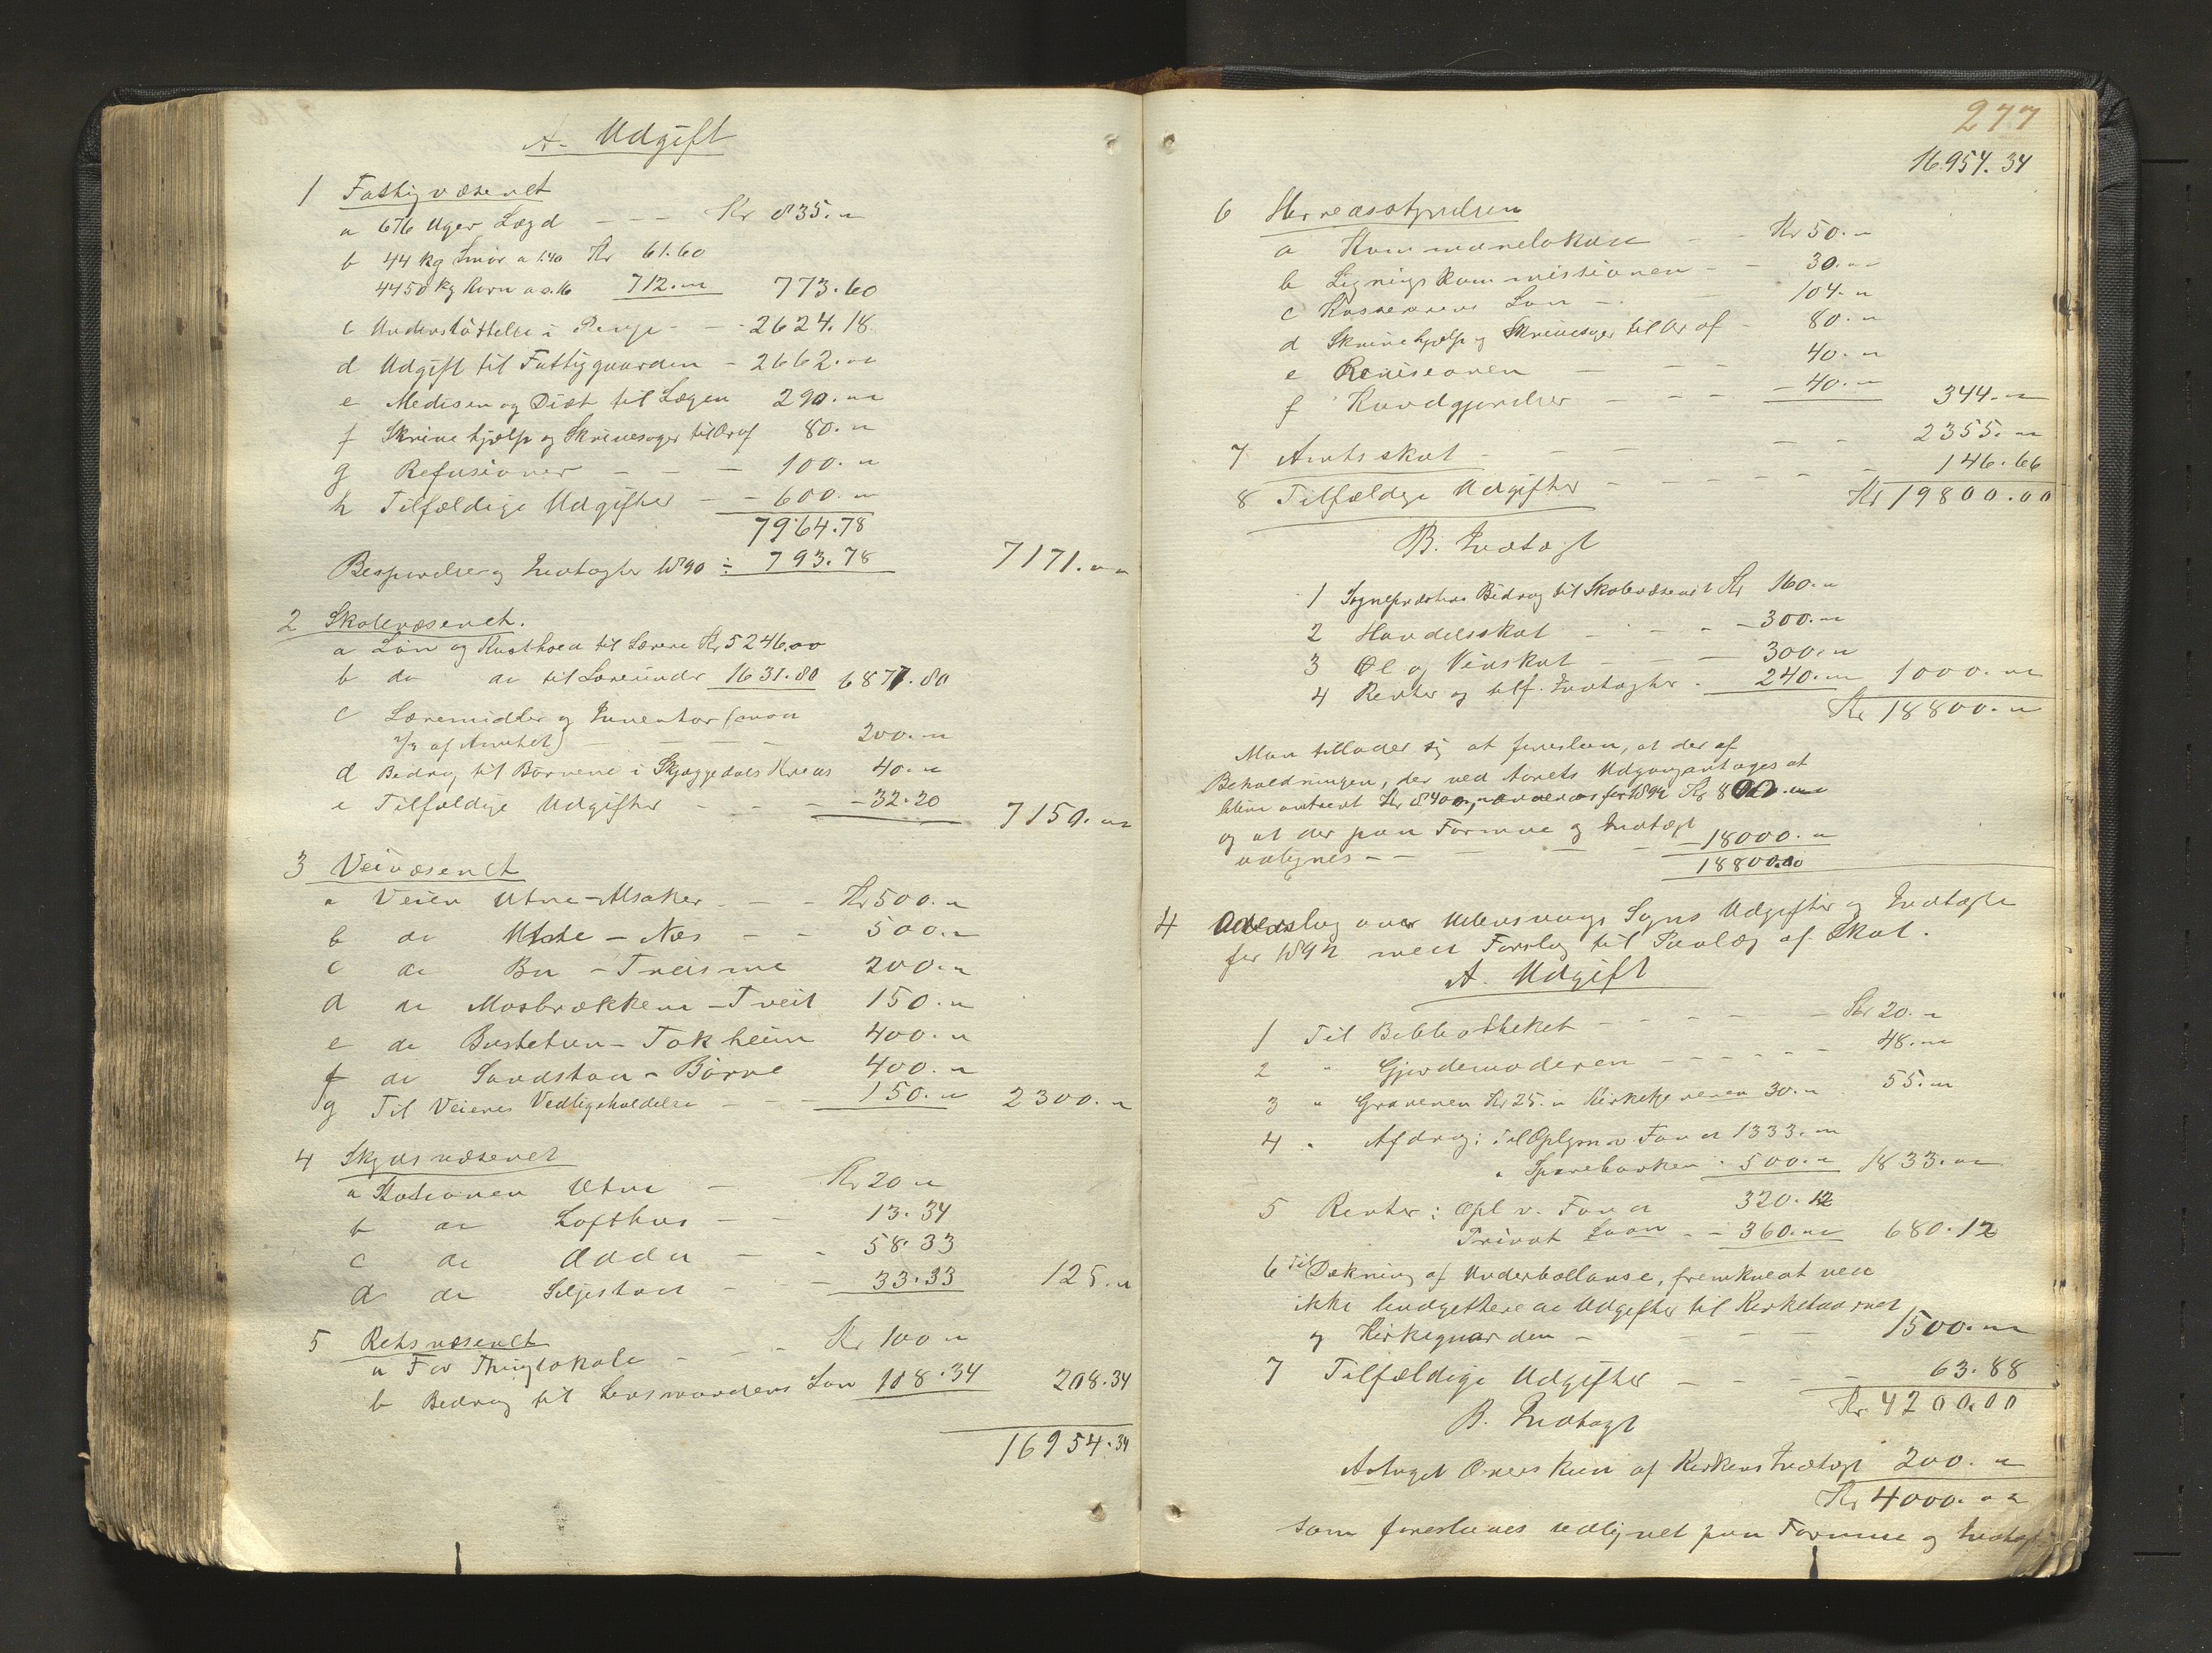 A. Udgift
1 Fattigvæsenet
a 676 Uger Lægd - - - Kr 835. "
b 44 kg Smør a 1.40 Kr 61.60
4450 kg Korn a 0.16 712. " 773.60
c Understøttelse i Penge - - 2624.18
d Udgift til Fattiggaarden - 2662. "
e Medisin og Diæt til Lægen 290. "
f Skrivehjælp og Skrivesager til Ordf 80. "
g Refusioner - - - 100. "
h Tilfældige Udgifter - - 600. "
7964.78
Besparelse og Indtægter 1890 ÷ 793.78 7171. "
2 Skolevæsenet.
a Løn og Kosthold til Lærere Kr 5246.00
b do do til Lærerinder 1631.80 6877.80
c Læremidler og Inventar (mod
2/3 af Amtet) - - - - 200. "
d Bidrag til Børnene i Skjæggedals Kreds 40. "
e Tilfældige Udgifter - - - 32.20 7150. "
3 Veivæsenet
a Veien Utne - Alsaker - - Kr 500. "
b do Utste - Næs - - 500. "
c do Bu - Treisme 200. "
d do Mosbrækkene - Tveit 150. "
e do Bustetun - Tokheim 400. "
f do Sandstøa - Børve 400. "
g Til Veienes Vedligeholdelse - - - 150. " 2300. "
4 Skydsvæsenet
a Stationen Utne - Kr 20 "
b do Lofthus - - 13.34
c do Odda - - 58.33
d do Seljestad - - 33.33 125. "
5 Retsvæsenet
a For Thinglokale - - - Kr 100 "
b Bidrag til Lensmandens Løn 108.34 208.34
16954.34
277
16954.34
6 Herredsstyrelsen
a Kommunelokale - - Kr 50. "
b Ligningskommissionen - - 30. "
c Kassererens Løn - - 104. "
d Skrivehjælp og Skrivesager til Ordf - 80. "
e Revisionen - - - 40. "
f Kundgjørelser - - - 40. " 344. "
7 Amtsskat - - - - - 2355. "
8 Tilfældige Udgifter - - - - - 146.66
Kr 19800.00
B. Indtægt
1 Sognepræstens Bidrag til Skolevæsenet Kr 160. "
2 Handelsskat - - - - 300. "
3 Øl og Vinskat - - - 300. "
4 Renter og tilf. Indtægter - 240. " 1000. "
Kr 18800. "
Man tillader sig at foreslaa, at der af
Beholdningen, der ved Aarets Udgang antages at
blive omtrent Kr 8400, anvendes for 1892 Kr 800. "
og at der paa Formue og Indtægt
udlignes - - - - - 18000. "
18800.00
4 Overslag over Ullensvangs Sogns Udgifter og Indtægter
for 1892 med Forslag til Paalæg af Skat.
A. Udgift
1 Til Bibliotheket - - - - - Kr 20. "
2 " Gjordemoderen - - - - - 48. "
3 " Graveren Kr 25. " Kirketjeneren 30. " 55. "
4 " Afdrag: til Oplysn.v. Fond 1333. "
" Sparebanken - 500. " 1833. "
5 Renter: Opl v. Fond 320.12
Privat Laan - - 360. " 680.12
6 Til Dækning af Underballanse, fremkomt ved
ikke budgetterede Udgifter til Kirketaarnet
og Kirkegaarden - - - - 1500. "
7 Tilfældige Udgifter - - - - 63.88
Kr 4200.00
B. Indtægt
Antaget Overskud af Kirkens Indtægt 200. "
Kr 4000. "
som foreslaaes udlignet paa Formue og Indtægt